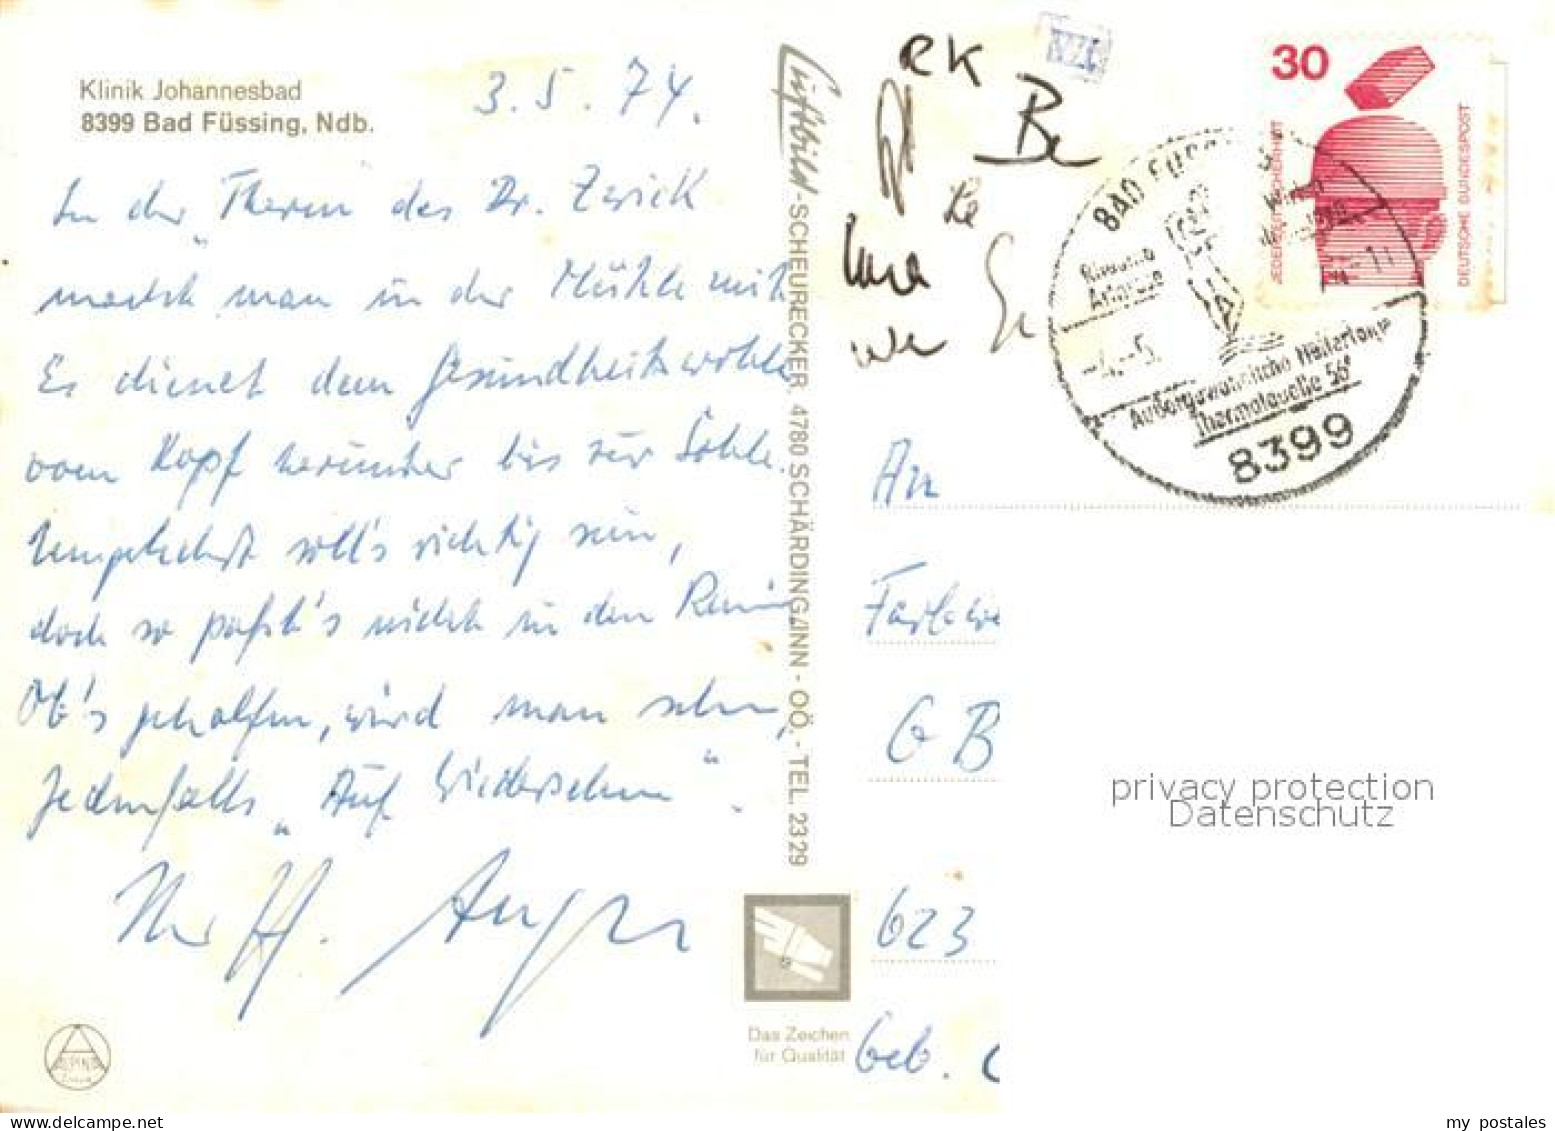 Klinik Johannesbad
8399 Bad Füssing, Ndb.
3.5.74.
In der Therme des Dr. Zwick
macht man in der Mühle mit
Es dient dem Gesundheitswohle
vom Kopf herunter bis zur Sohle.
Umgekehrt soll's richtig sein,
doch so paßt's nicht in den Reim
Ob's geholfen, wird man sehn,
Jedenfalls „Auf Wiedersehen".
Luftbild-SCHEURECKER, 4780 SCHÄRDING/INN - OÖ. - TEL. 2329
Das Zeichen
für Qualität
ALPINA
RK
Be
Le
wer
30
JEDERZEIT SICHERHEIT
DEUTSCHE BUNDESPOST
BAD FÜSSING
Rheuma
Arthrose
-4.-5.
Außergewöhnliche Heilerfolge
Thermalquelle 56°
8399
An
Farbwe
GB
623
Geb. C
privacy protection
Datenschutz
my postales